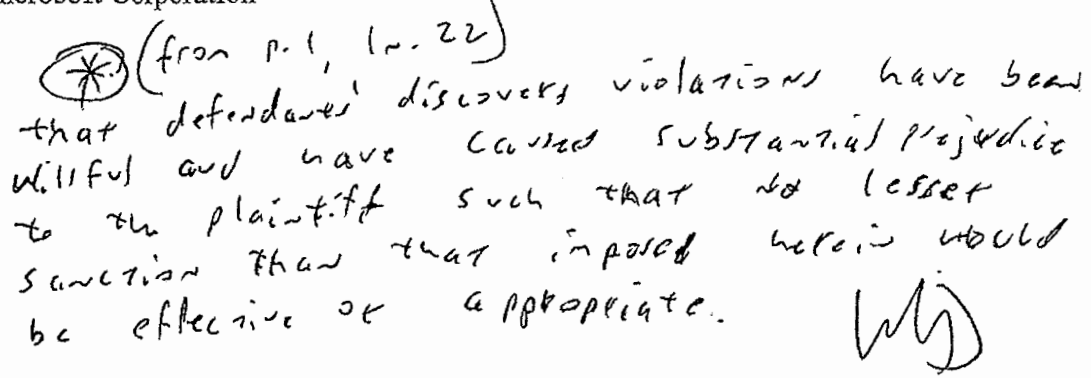 Corporation
* (from p. 1, ln. 22)
that defendants' discovery violations have been
willful and have caused substantial prejudice
to the plaintiff such that no lesser
sanction than that imposed herein would
be effective or appropriate.